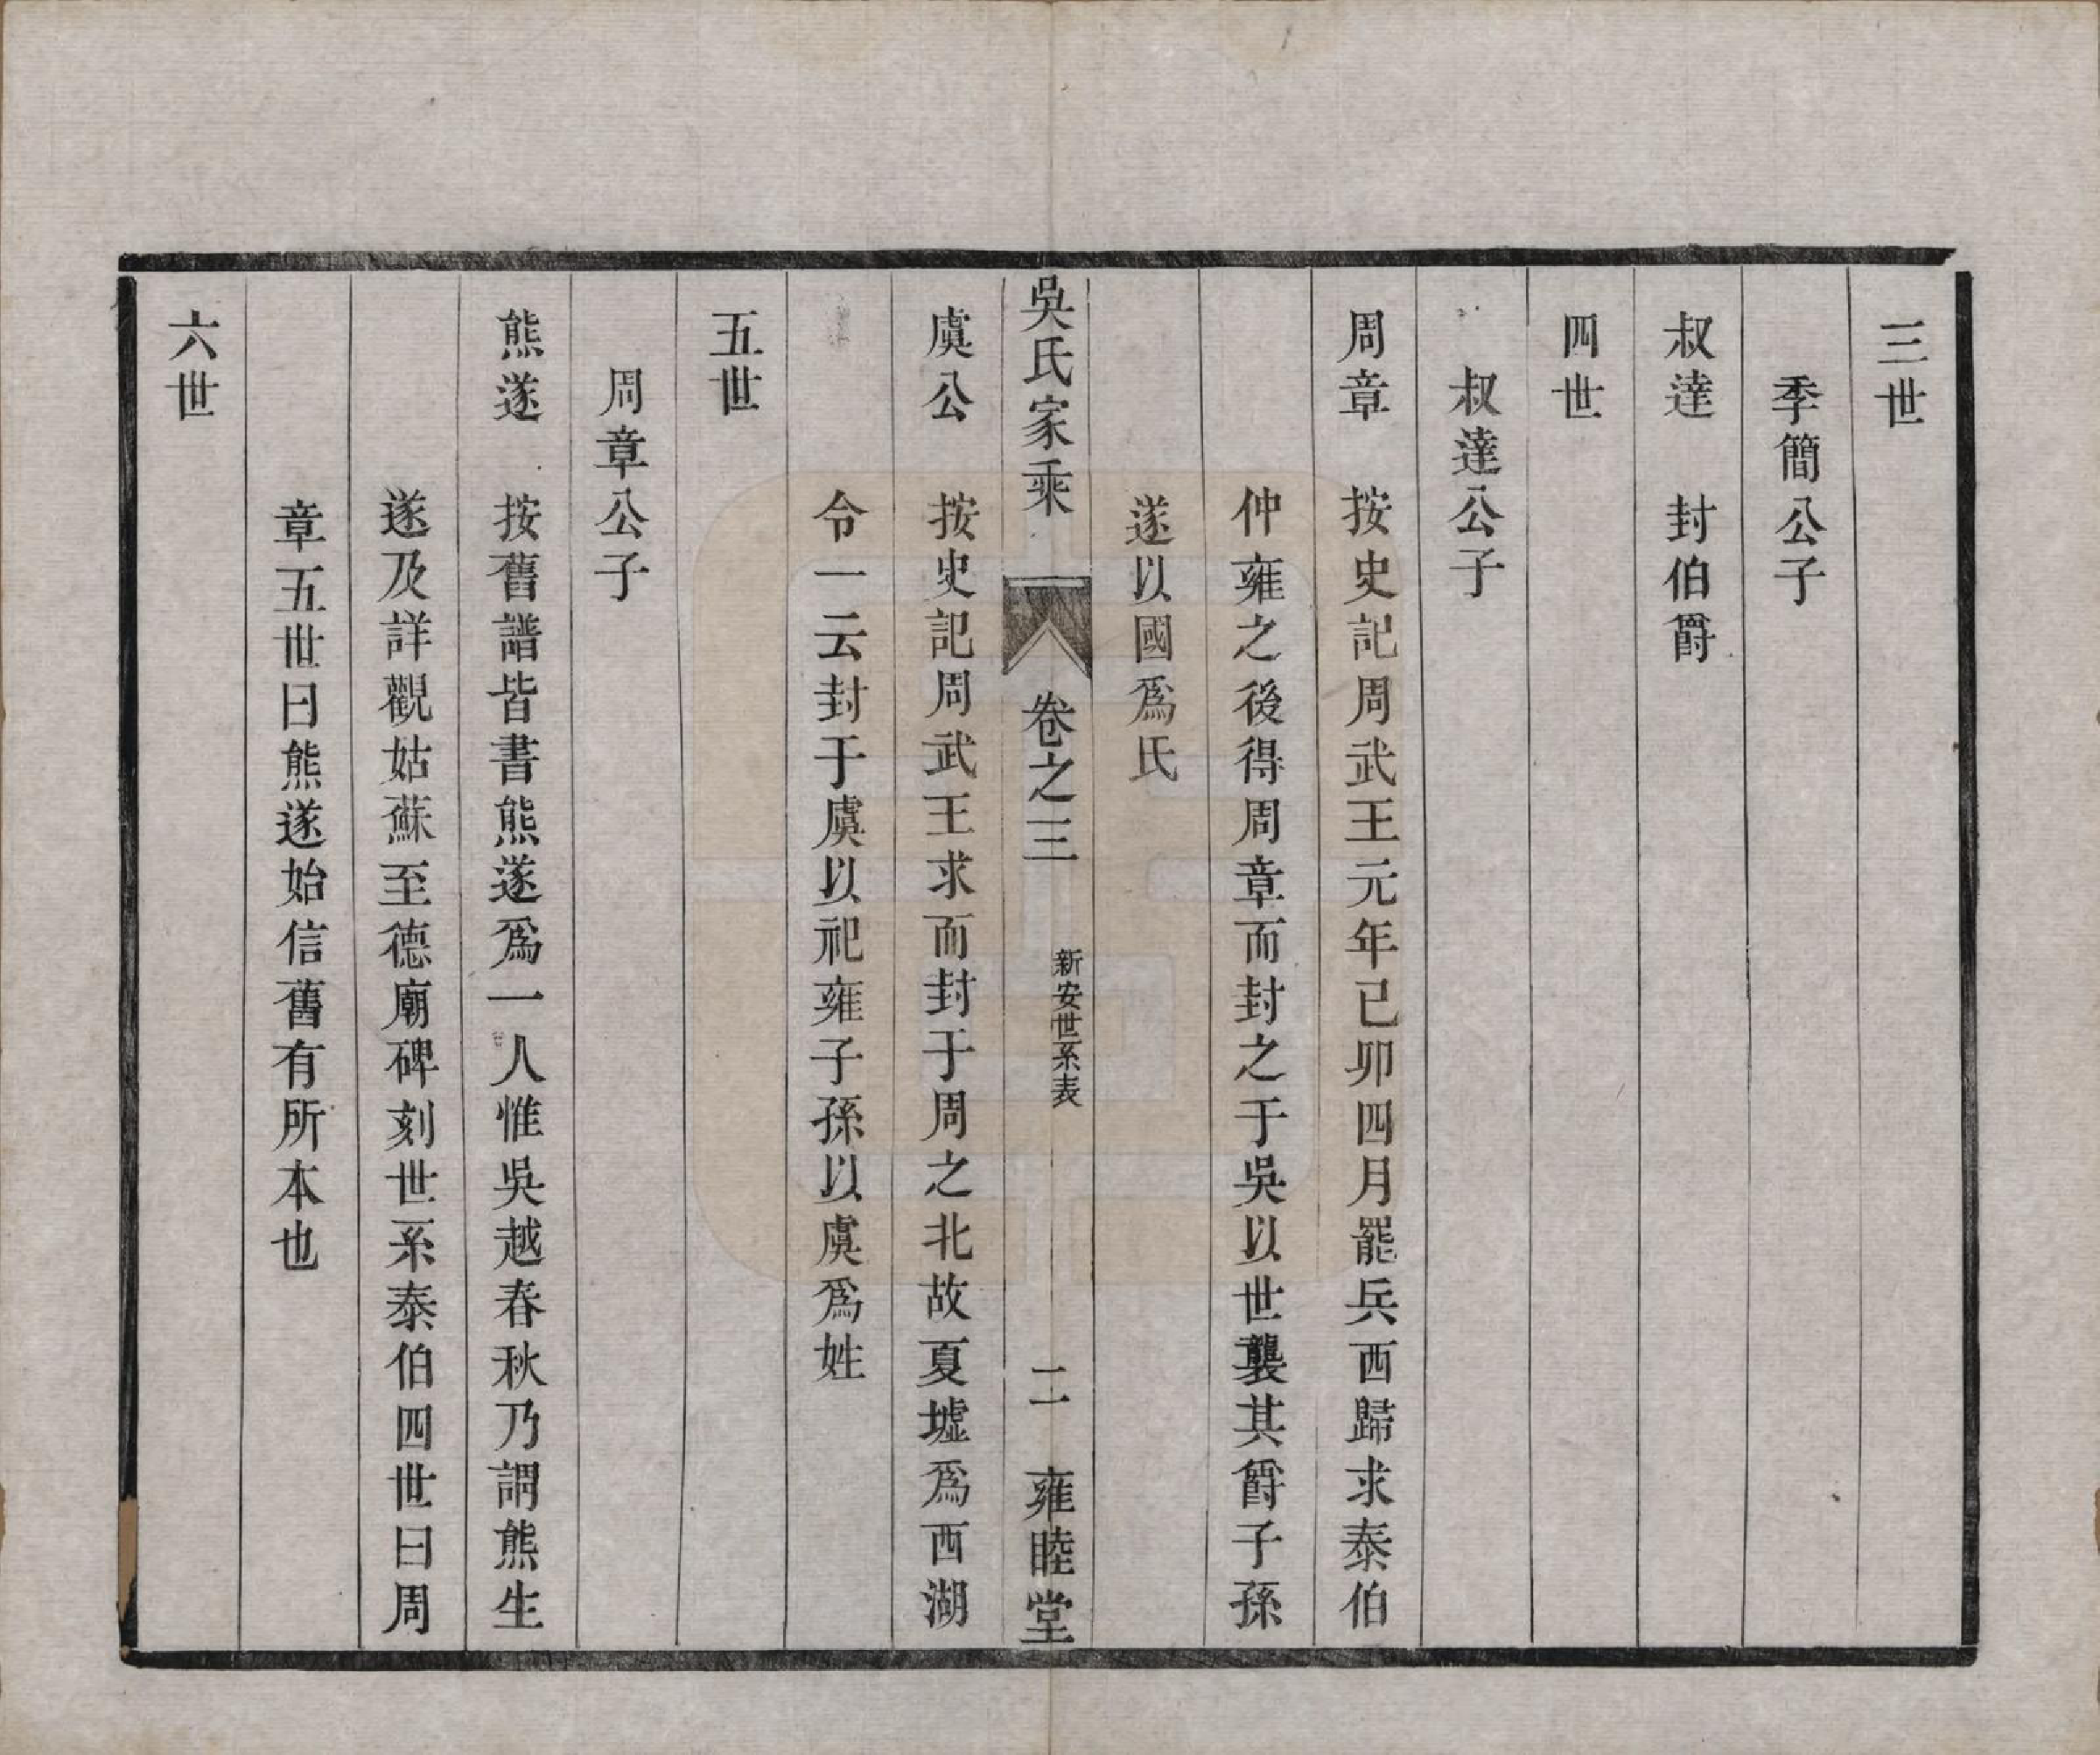 三世
季簡公子
叔達　封伯爵
四世
叔達公子
周章　按史記周武王元年已卯四月罷兵西歸求泰伯
仲雍之後得周章而封之于吳以世襲其爵子孫
遂以國爲氏
吳氏家乘　卷之三　新安世系表　二　雍睦堂
虞公　按史記周武王求而封于周之北故夏墟爲西湖
令一云封于虞以祀雍子孫以虞爲姓
五世
周章公子
熊遂　按舊譜皆書熊遂爲一人惟吳越春秋乃謂熊生
遂及詳觀姑蘇至德廟碑刻世系泰伯四世曰周
章五世曰熊遂始信舊有所本也
六世